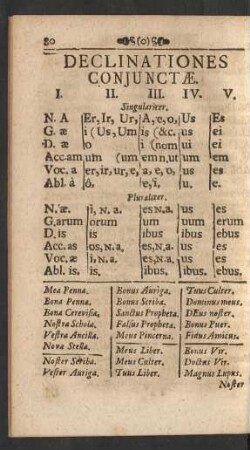 80 (o)
DECLINATIONES
CONJUNCTÆ.
I. II. III. IV. V.
Singulariter.
N. A Er, Ir, Ur, A, e, o, Us Es
G. æ i (Us, Um is (&c. us ei
D. æ o i (nom ui ei
Acc. am um (um em n, ut um em
Voc. a er, ir, ur, e, a, e, o, us es
Abl. à ô, e, i, u. e.
Pluraliter.
N. æ. i, N. a. es N. a. us es
G. arum orum um uum erum
D. is is ibus ibus ebus
Acc. as os, N. a. es, N. a. us es
Voc. æ i, N. a. es, N. a. us es
Abl. is. is. ibus. ibus. ebus.
Mea Penna. Bonus Auriga. Tuus Culter.
Bona Penna. Bonus Scriba. Dominus meus.
Bona Cerevisia. Sanctus Propheta. DEus noster.
Nostra Schola. Falsus Propheta. Bonus Puer.
Vestra Ancilla. Meus Pincerna. Fidus Amicus.
Nova Stella. Meus Liber. Bonus Vir.
Noster Scriba. Meus Culter. Doctus Vir.
Vester Auriga. Tuus Liber. Magnus Lupus.
Noster